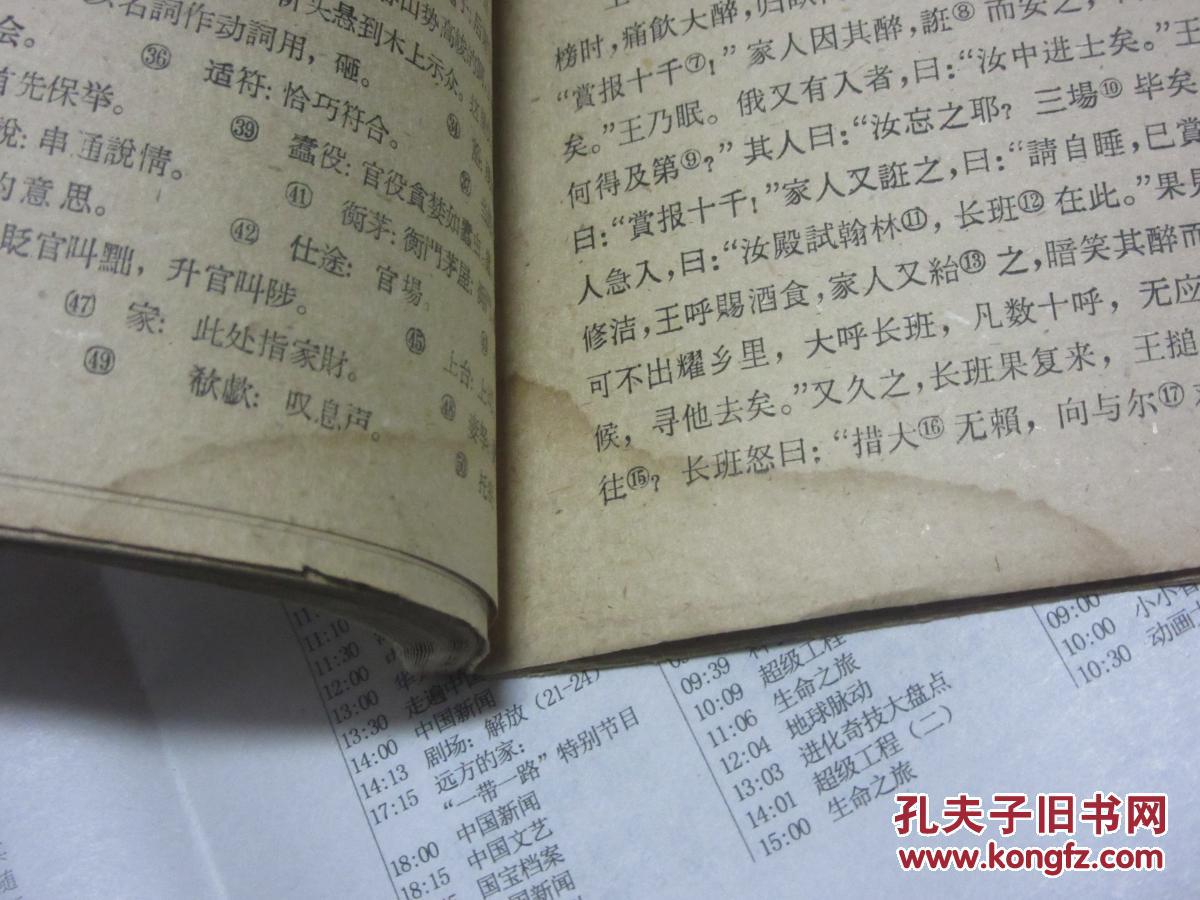 名詞作动詞用，砸。
头悬到木上示众。
会。
㊱ 适符：恰巧符合。
首先保举。
㊴ 蠹役：官役貪婪如蠹
說：串通說情。
㊶ 衡茅：衡門茅屋
的意思。
㊷ 仕途：官場。
貶官叫黜，升官叫陟。
㊺ 上台：上
㊼ 家：此处指家財。
㊽
㊾ 欷歔：叹息声。
㊿ 托
榜时，痛飲大醉，归
“賞报十千⑦！”家人因其醉，誑⑧而安之，
矣。”王乃眠。俄又有入者，曰：“汝中进士矣。”王
何得及第⑨？”其人曰：“汝忘之耶？三場⑩毕矣
曰：“賞报十千！”家人又誑之，曰：“請自睡，已賞
人急入，曰：“汝殿試翰林⑪，长班⑫在此。”果見
修洁，王呼賜酒食，家人又紿⑬之，暗笑其醉而
可不出耀乡里，大呼长班，凡数十呼，无应
候，寻他去矣。”又久之，长班果复来，王搥
往⑮？长班怒曰：“措大⑯无賴，向与尔⑰
11:10
11:30
12:00
13:00 走遍中国
13:30 中国新闻
14:00 剧场：解放（21-24）
14:13 远方的家：
17:15 “一带一路”特别节目
中国新闻
18:00 中国文艺
18:15 国宝档案
国新闻
09:39 超级工程
10:09 生命之旅
11:06 地球脉动
12:04 进化奇技大盘点
13:03 超级工程（二）
14:01 生命之旅
15:00
09:00 小小智
10:00 动画
10:30
随
孔夫子旧书网
www.kongfz.com